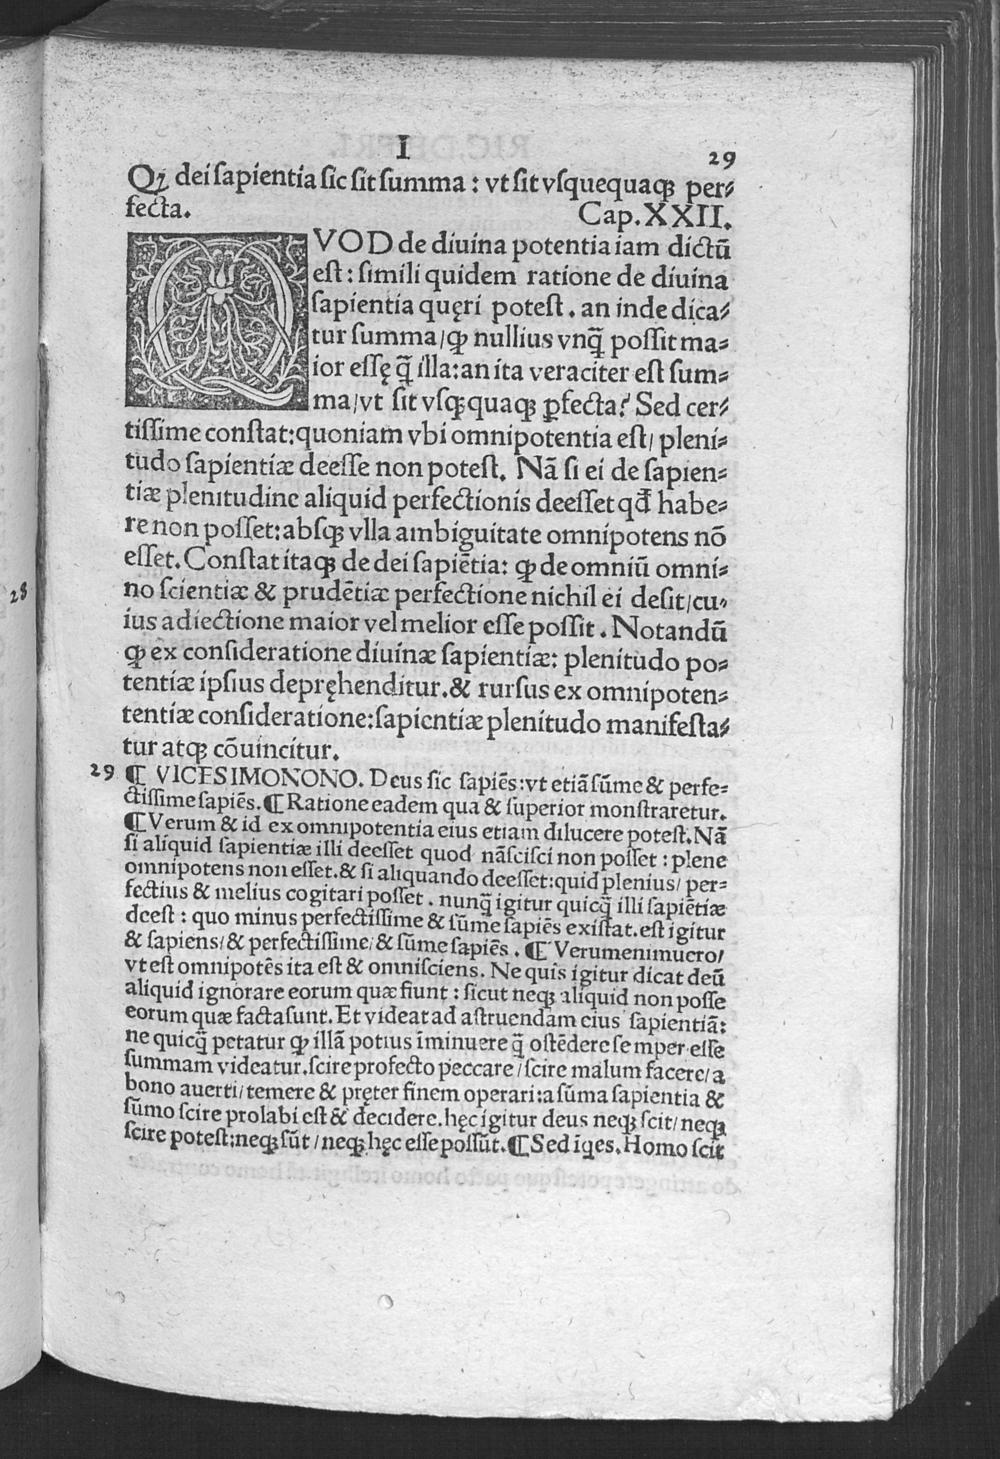 I
29
Qꝫ dei sapientia sic sit summa : vt sit vsquequaqꝫ per⸗
fecta. Cap. XXII.
QVOD de diuina potentia iam dictū
est : simili quidem ratione de diuina
sapientia quęri potest . an inde dica⸗
tur summa/ꝙ nullius vnq̄ possit ma⸗
ior essę q̄ illa:an ita veraciter est sum⸗
ma/vt sit vsqꝫquaqꝫ ꝑfecta? Sed cer⸗
tissime constat:quoniam vbi omnipotentia est/ pleni⸗
tudo sapientiæ deesse non potest. Nā si ei de sapien⸗
tiæ plenitudine aliquid perfectionis deesset qđ habe⸗
re non posset:absqꝫ vlla ambiguitate omnipotens nō
esset. Constat itaqꝫ de dei sapiētia: ꝙ de omniū omni⸗
no scientiæ & prudētiæ perfectione nichil ei desit/cu⸗
ius adiectione maior vel melior esse possit . Notandū
ꝙ ex consideratione diuinæ sapientiæ: plenitudo po⸗
tentiæ ipsius depręhenditur.& rursus ex omnipoten⸗
tentiæ consideratione:sapientiæ plenitudo manifesta⸗
tur atqꝫ cōuincitur.
29 ¶ VICESIMONONO. Deus sic sapiēs:vt etiā sūme & perfe⸗
ctissime sapiēs. ¶ Ratione eadem qua & superior monstraretur.
¶ Verum & id ex omnipotentia eius etiam dilucere potest. Nā
si aliquid sapientiæ illi deesset quod nāscisci non posset : plene
omnipotens non esset.& si aliquando deesset:quid plenius/ per⸗
fectius & melius cogitari posset . nunq̄ igitur quicq̄ illi sapiētiæ
deest : quo minus perfectissime & sūme sapiēs existat. est igitur
& sapiens/& perfectissime/& sūme sapiēs . ¶ Verumenimuero/
vt est omnipotēs ita est & omnisciens. Ne quis igitur dicat deū
aliquid ignorare eorum quæ fiunt : sicut neqꝫ aliquid non posse
eorum quæ facta sunt. Et videat ad astruendam eius sapientiā:
ne quicq̄ petatur ꝙ illā potius īminuere q̄ ostēdere semper esse
summam videatur.scire profecto peccare/scire malum facere/a
bono auerti/temere & pręter finem operari:a sūma sapientia &
sūmo scire prolabi est & decidere.hęc igitur deus neqꝫ scit/neqꝫ
scire potest:neqꝫ sūt/neqꝫ hęc esse possūt. ¶ Sed iq̄es. Homo scit
28